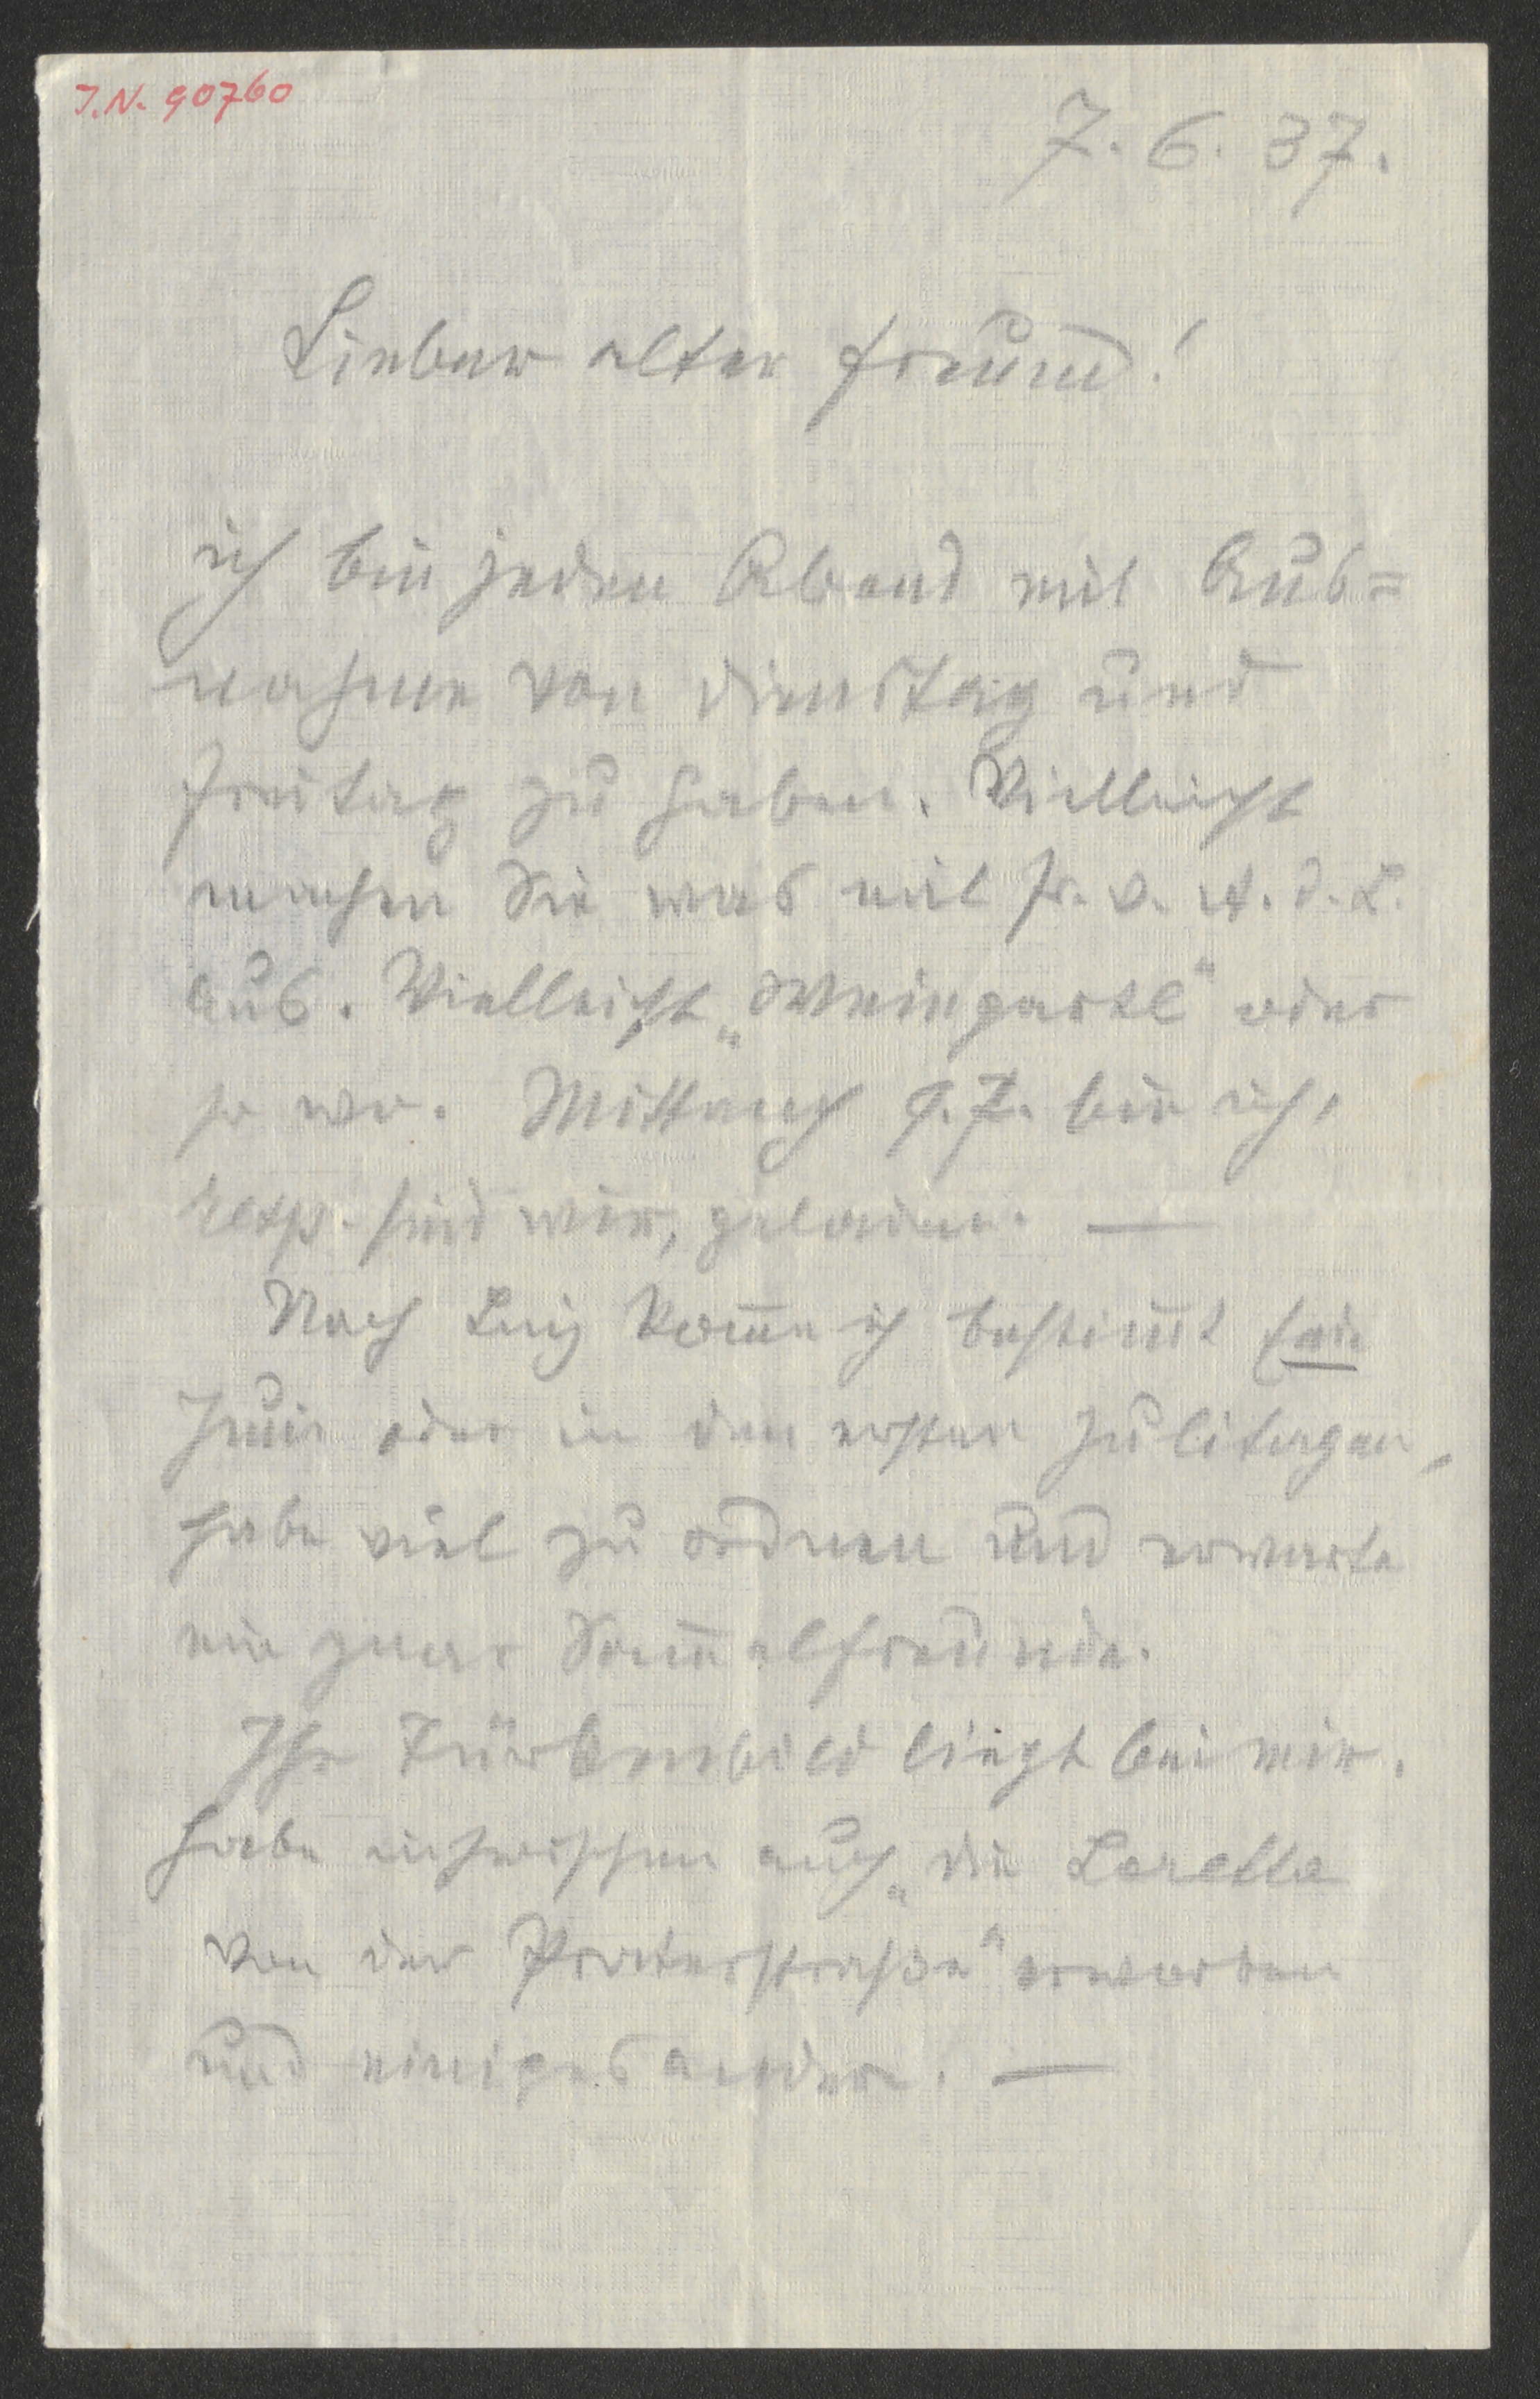 J.N. 90760
7. 6. 37.
Lieber alter Freund!
ich bin jeden Abend mit Aus=
nahme von Dienstag und
Freitag zu haben. Vielleicht
machen Sie was mit Fr. v. A. d. L.
aus. Vielleicht „Weingartl“ oder
so wo. Mittwoch 9. 7. bin ich,
resp. sind wir, geladen. —
Nach komme ich bestimmt
Juni oder in den ersten Julitagen,
habe viel zu ordnen und erwarte
ein paar Sammelfreunde.
Ihr Türkenbild liegt bei mir.
Habe inzwischen auch „die Lorette
von der Praterstraße“ erworben
und einiges andere. —